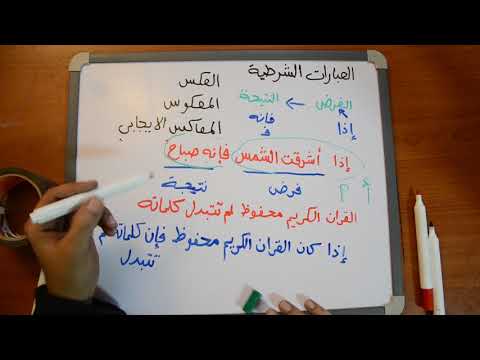 العبارات الشرطية
العكس
الفرض ← النتيجة
المعكوس
إذا فإنه
ف
المعاكس الايجابي
إذا أشرقت الشمس فإنه صباح
فرض نتيجة
القران الكريم محفوظ لم تتبدل كلماته
إذا كان القران الكريم محفوظ فإن كلماته لم
تتبدل